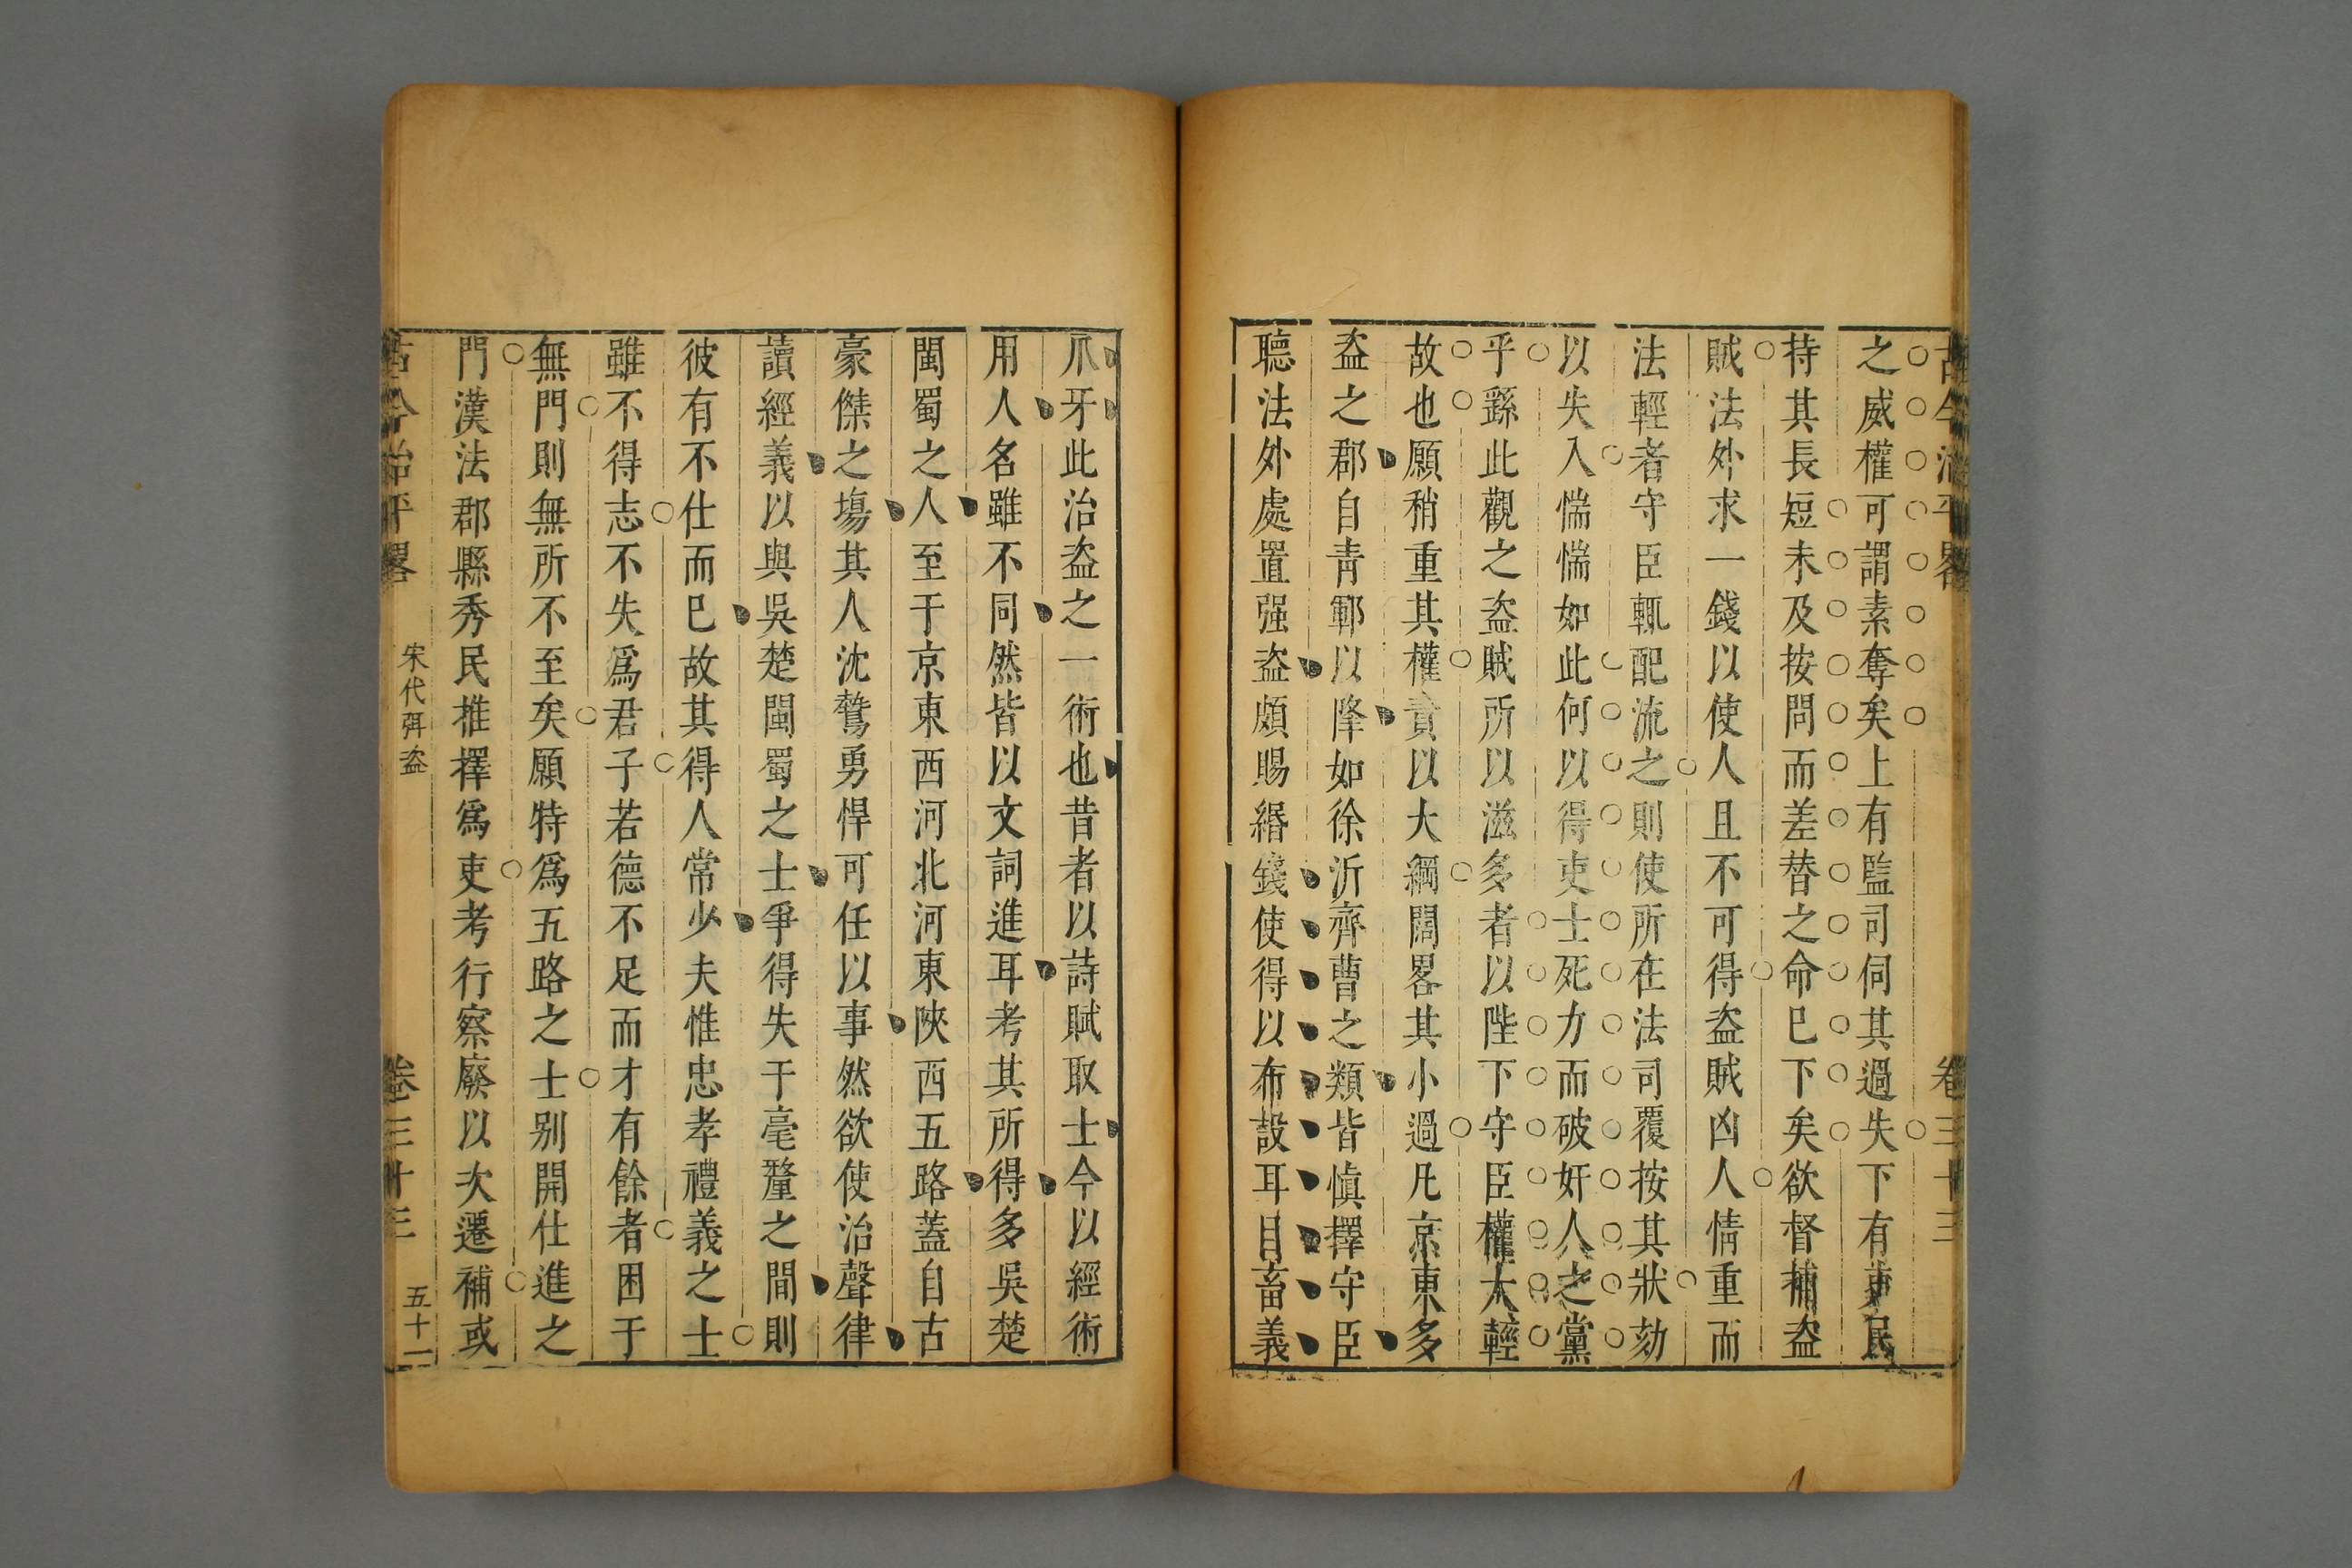 古今治平畧
卷三十三
之威權可謂素奪矣上有監司伺其過失下有吏民
持其長短未及按問而差替之命已下矣欲督補盗
賊法外求一錢以使人且不可得盗賊凶人情重而
法輕者守臣輒配流之則使所在法司覆按其狀劾
以失入惴惴如此何以得吏士死力而破奸人之黨
乎繇此觀之盗賊所以滋多者以陛下守臣權太輕
故也願稍重其權責以大綱闊畧其小過凡京東多
盗之郡自青鄆以降如徐沂齊曹之類皆慎擇守臣
聽法外處置强盗頗賜緡錢使得以布設耳目畜義
爪牙此治盗之一術也昔者以詩賦取士今以經術
用人名雖不同然皆以文詞進耳考其所得多吳楚
閩蜀之人至于京東西河北河東陝西五路蓋自古
豪傑之塲其人沈鷙勇悍可任以事然欲使治聲律
讀經義以與吳楚閩蜀之士爭得失于毫釐之間則
彼有不仕而已故其得人常少夫惟忠孝禮義之士
雖不得志不失爲君子若德不足而才有餘者困于
無門則無所不至矣願特爲五路之士别開仕進之
門漢法郡縣秀民推擇爲吏考行察廢以次遷補或
古今治平畧
宋代弭盗
卷三十三
五十一